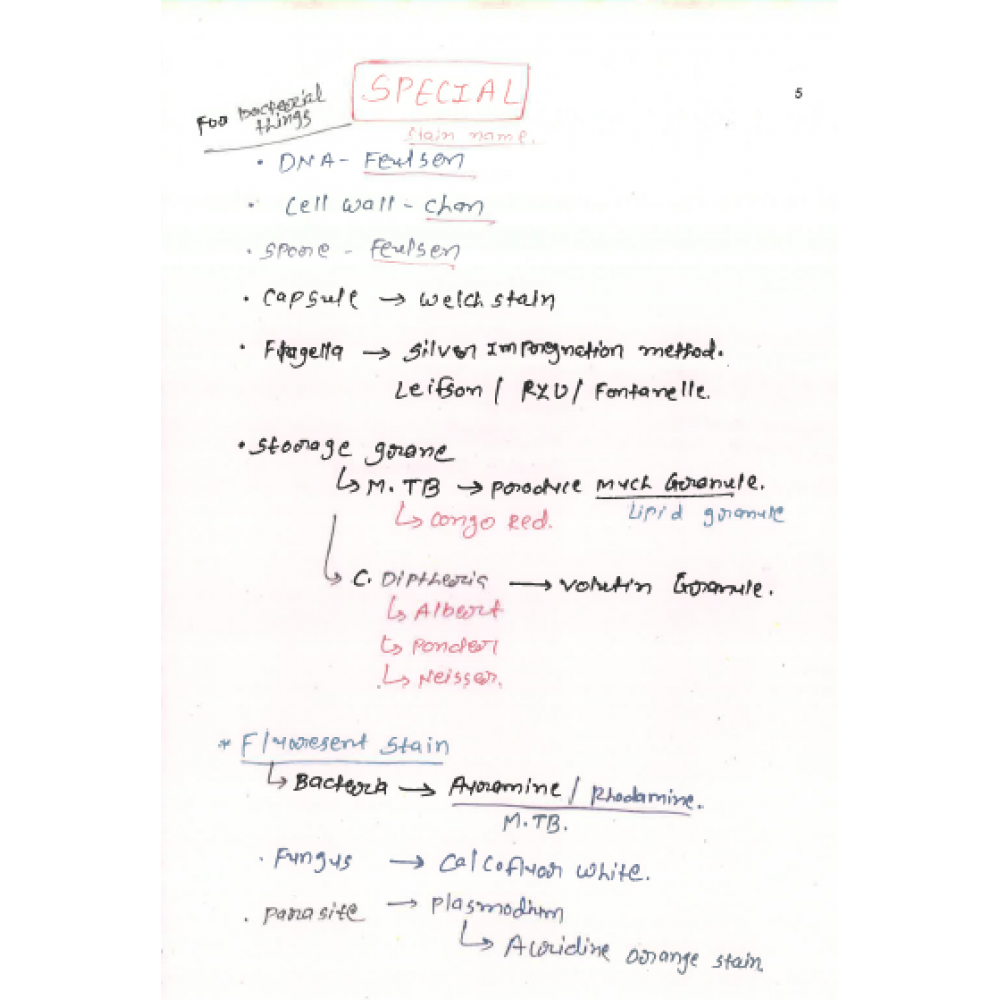 SPECIAL
5
Foo bacterial
things
Stain name.
• DNA - Feulsen
• Cell wall - Chan
• Spore - Feulsen
• Capsule → Welch stain
• Flagella → Silver Impregnation method.
Leifson / RYU / Fontanelle.
• Storage grane
↳ M. TB → Produce Much Granule.
↳ Congo Red.
Lipid granule
↳ C. Diptheria → Volutin Granule.
↳ Albert
↳ Ponder
↳ Neisser.
* Fluoresent Stain
↳ Bacteria → Auramine / Rhodamine.
M.TB.
• Fungus → Calcofluor White.
• Parasite → Plasmodium
↳ Acridine Orange stain